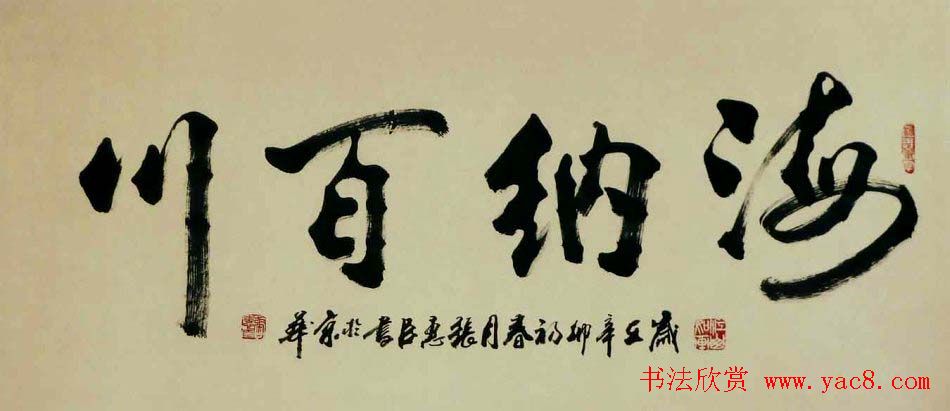 海纳百川
岁在辛卯初春月张惠臣书于京华
书法欣赏 www.yac8.com